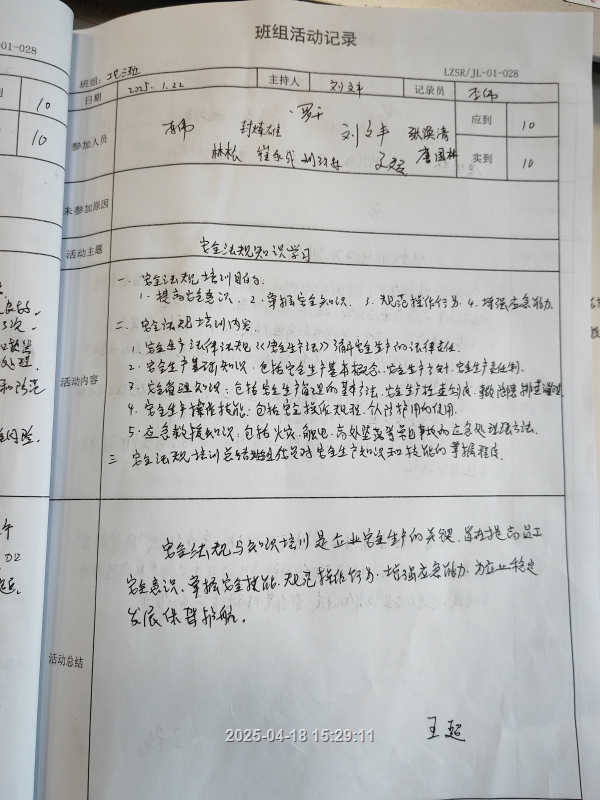 -01-028
班组活动记录
LZSR/JL-01-028
班组:
日期 2025.1.22 主持人 刘文丰 记录员 李伟
10
10
参加人员
应到 10
李伟 封海雄 罗干 刘文丰 张焕清
林松
实到 10
未参加原因
活动主题 安全法规知识学习
活动内容
一、安全法规培训目的:
1、提高安全意识、2、掌握安全知识、3、规范操作行为、4、增强应急能力
二、安全法规培训内容
1、安全生产法律法规《安全生产法》 安全生产的法律责任.
2、安全生产基础知识,包括安全生产基本概念、安全生产方针、安全生产责任制.
3、安全管理知识:包括安全生产管理的基本方法、安全生产检查制度、事故隐患排查治理
4、安全生产操作技能:包括安全操作规程、个人防护用的使用.
5、应急救援知识:包括火灾、触电、高处坠落等突发事故的应急处理方法.
三、安全法规培训总结班组成员对安全生产知识和技能的掌握程度.
活动总结
安全法规与知识培训是企业安全生产的关键 提高员工
安全意识、掌握安全技能、规范操作行为、增强应急能力、为企业稳定
发展保驾护航.
王超
2025-04-18 15:29:11